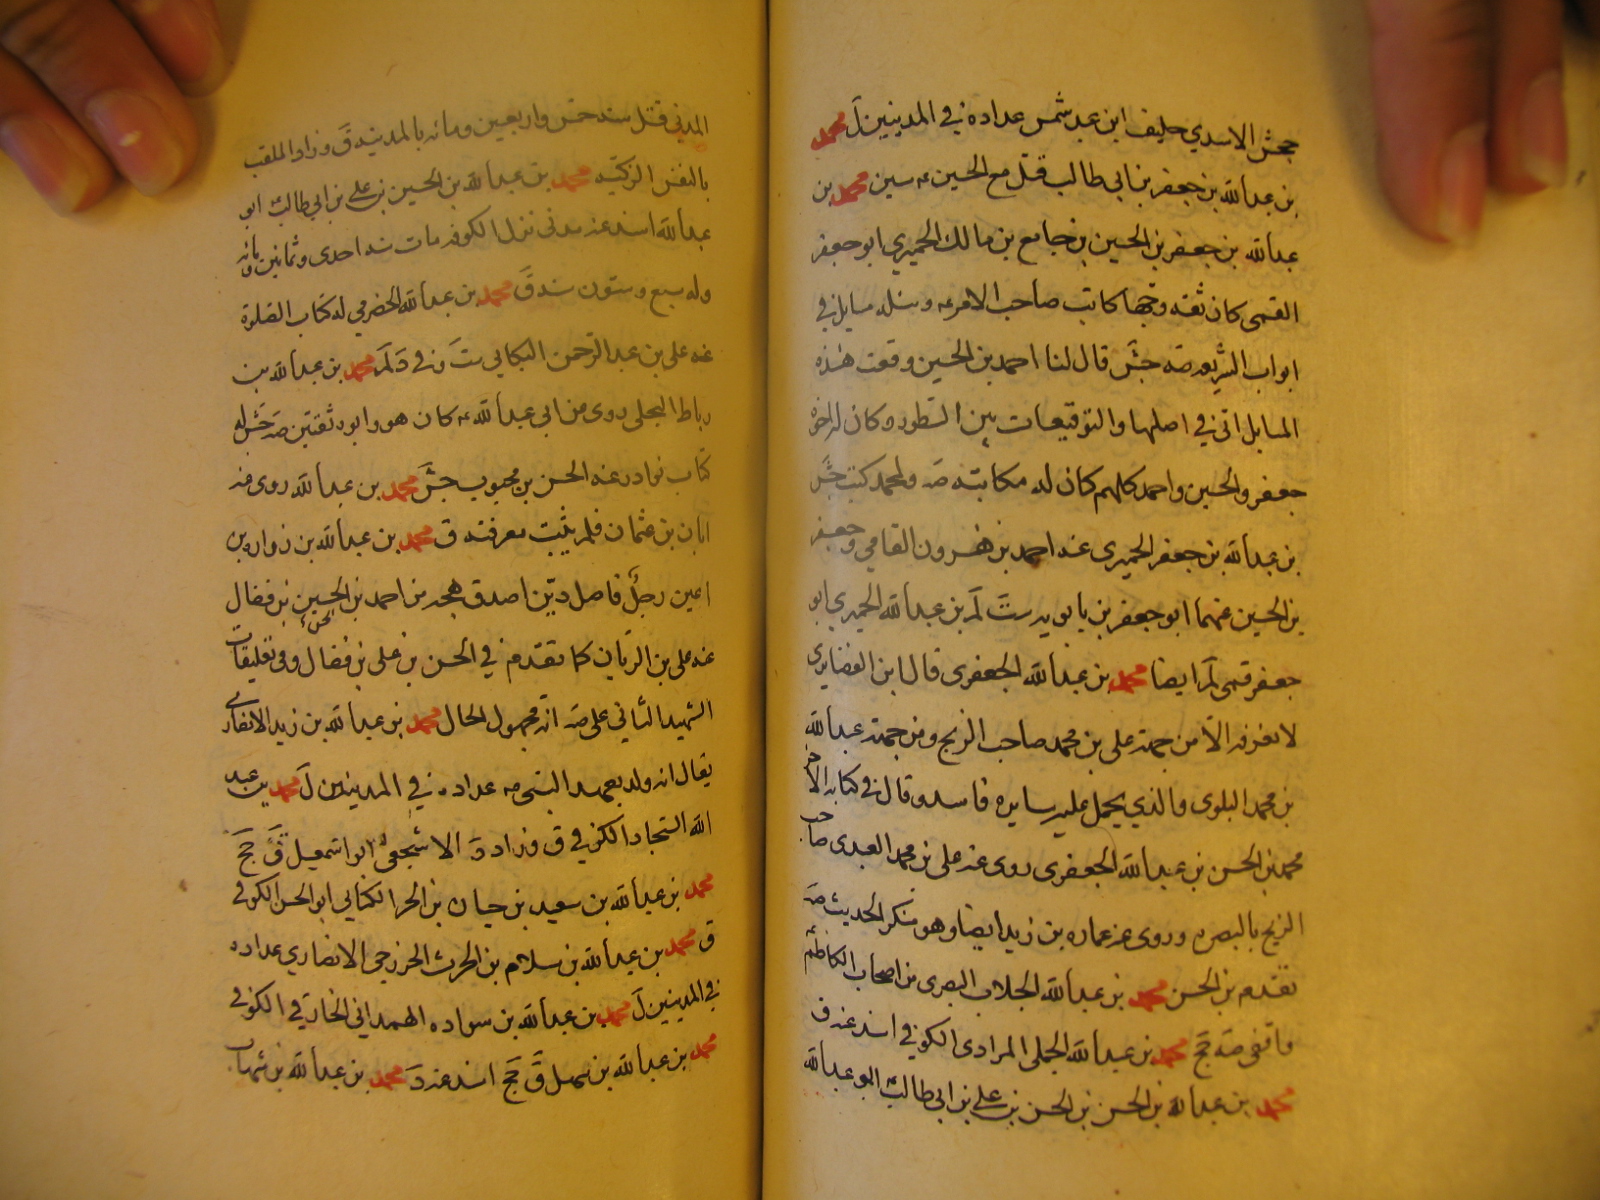 جحش الاسدي حليف ابن عبد شمس عداده في المدينين ل محمد
بن عبدالله بن جعفر بن ابي طالب قتل مع الحسين عه سين محمد بن
عبدالله بن جعفر بن الحسين بن جامع بن مالك الحميري ابو جعفر
القمى كان ثقة وجها كاتب صاحب الامر عه وسئله مسايل في
ابواب الشريعه صه جش قال لنا احمد بن الحسين وقعت هذه
المسايل الي في اصلها والتوقيعات بين السطور وكان له اخوة
جعفر والحسين واحمد كلهم كان له مكاتبة صه ولمحمد كتب جش
بن عبدالله بن جعفر الحميرى عنه احمد بن هرون الفامي وجعفر
بن الحسين عنهما ابو جعفر بن بابويه ست لم بن عبدالله الحميري ابو
جعفر قمى لم ايضا محمد بن عبدالله الجعفرى قال ابن الغضايرى
لا نعرفه الا من جهة علي بن محمد صاحب الزنج ومن جهة عبدالله
بن محمد البلوى والذي يحمل عليه سايره فاسد وقال في كتابه الاخر
محمد بن الحسن بن عبدالله الجعفرى روى عنه على بن محمد العبدى صاحب
الزنج بالبصره وروى عنه عماره بن زيد ايضا وهو منكر الحديث صه
تقدم بن الحسن محمد بن عبدالله الجلاب البصرى من اصحاب الكاظم عه
واقفى صه جخ محمد بن عبدالله الجملى المرادى الكوفي اسند عنه ق
محمد بن عبدالله بن الحسن بن الحسن بن علي بن ابي طالب ابو عبدالله
المدني قتل سنة خمس واربعين ومائه بالمدينة ق وزاد الملقب
بالنفس الزكية محمد بن عبدالله بن الحسين بن علي بن ابي طالب ابو
عبدالله اسند عنه مدنى نزل الكوفه مات سنة احدى وثمانين ومائه
وله سبع وستون سنة ق محمد بن عبدالله الحضرمي له كتاب الصلوة
عنه على بن عبد الرحمن البكايي ست وفي د لم محمد بن عبدالله بن
رباط البجلى روى عن ابي عبدالله عه كان هو وابوه ثقتين صه جش له
كتاب نوادر عنه الحسن بن محبوب جش محمد بن عبدالله روى عنه
ابان بن عثمان فلم يثبت معرفته ق محمد بن عبدالله بن زراره بن
اعين رجل فاضل دين اصدق لهجة من احمد بن الحسين بن فضال
عنه على بن الريان كما تقدم في الحسن بن على بن فضال وفي تعليقات
الشهيد الثاني على صه انه مجهول الحال محمد بن عبدالله بن زيد الانصارى
يقال انه ولد بعهد النبى صه عداده في المدينين ل محمد بن عبد
الله النجاد الكوفي ق وزاد د الاشجعى ابو اسمعيل ق جخ
محمد بن عبدالله بن سعيد بن حيان بن الحر الكناني ابو الحسن الكوفي
ق محمد بن عبدالله بن سلام بن الحرث الخزرجي الانصاري عداده
في المدينين ل محمد بن عبدالله بن سواده الهمداني الخارفي الكوفي
محمد بن عبدالله بن سهل ق جخ اسند عنه د محمد بن عبدالله بن شهاب